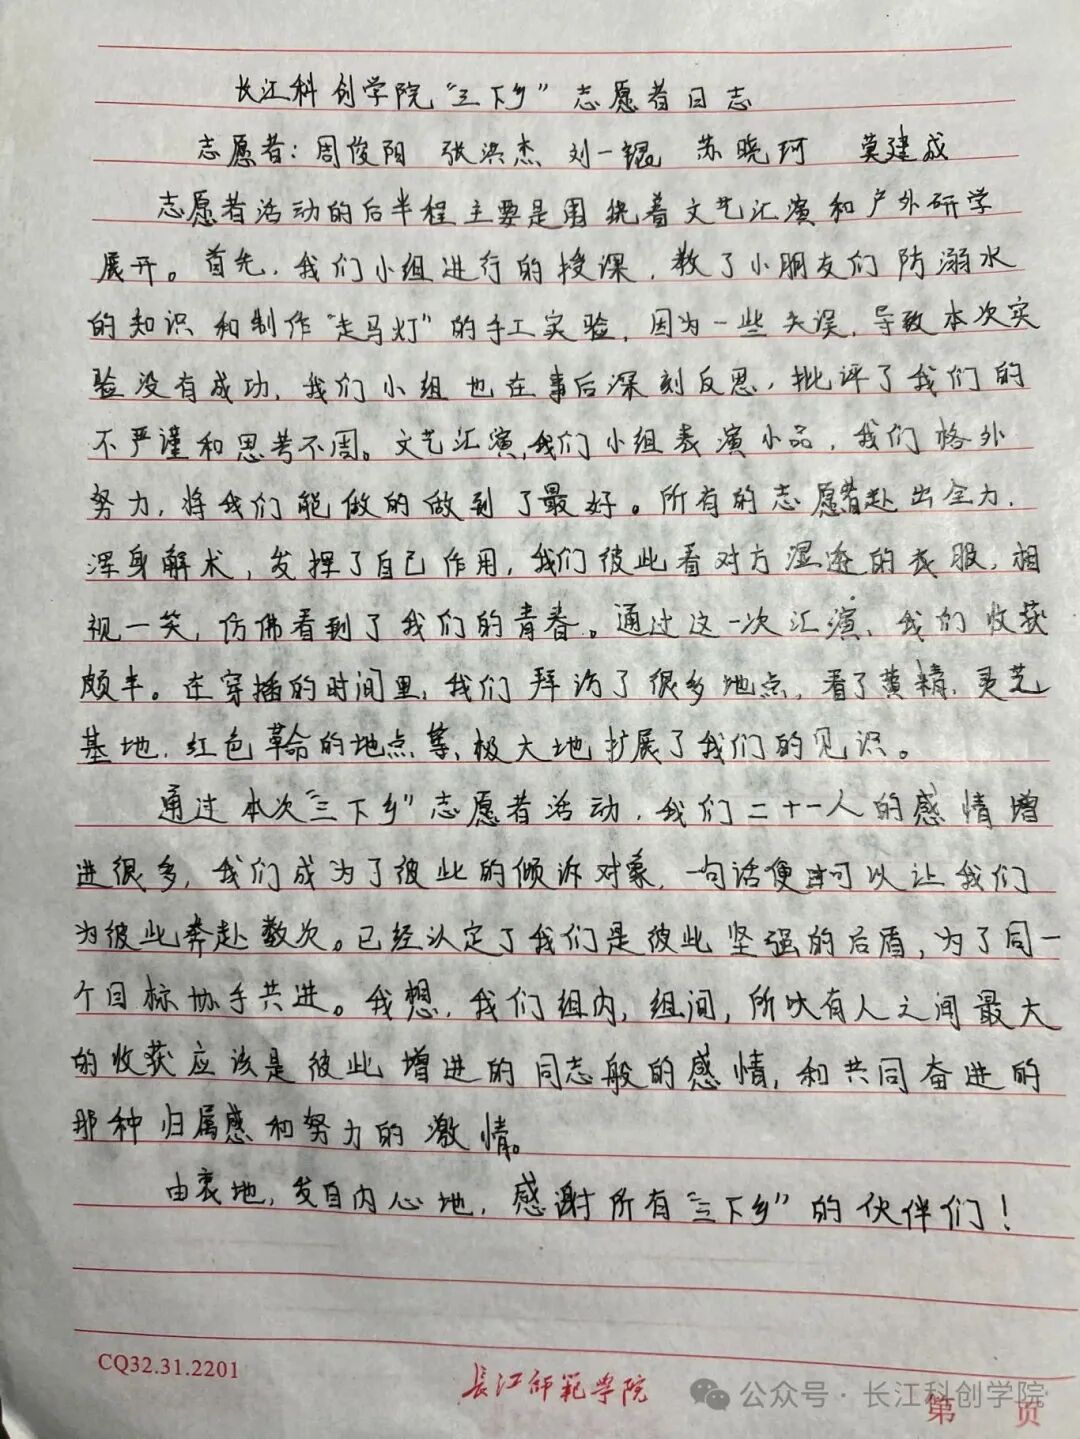 长江科创学院“三下乡”志愿者日志
志愿者：周俊阳 张洪杰 刘一锟 苏晓珂 莫建成
志愿者活动的后半程主要是围绕着文艺汇演和户外研学
展开。首先，我们小组进行的授课，教了小朋友们防溺水
的知识和制作“走马灯”的手工实验，因为一些失误，导致本次实
验没有成功，我们小组也在事后深刻反思，批评了我们的
不严谨和思考不周。文艺汇演，我们小组表演小品，我们格外
努力，将我们能做的做到了最好。所有的志愿者赴出全力，
浑身解术，发挥了自己作用，我们彼此看对方湿透的衣服，相
视一笑，仿佛看到了我们的青春。通过这一次汇演，我们收获
颇丰。在穿插的时间里，我们拜访了很多地点，看了黄精、灵芝
基地，红色革命的地点等，极大地扩展了我们的见识。
通过本次“三下乡”志愿者活动，我们二十一人的感情增
进很多，我们成为了彼此的倾诉对象，一句话便可以让我们
为彼此奔赴数次。已经认定了我们是彼此坚强的后盾，为了同一
个目标协手共进。我想，我们组内，组间，所以有人之间最大
的收获应该是彼此增进的同志般的感情，和共同奋进的
那种归属感和努力的激情。
由衷地，发自内心地，感谢所有“三下乡”的伙伴们！
CQ32.31.2201
长江师范学院
公众号·长江科创学院
第 页